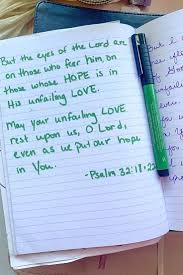 But the eyes of the Lord are
on those who fear him, on
those whose HOPE is in
His unfailing LOVE.
May your unfailing LOVE
rest upon us, O Lord,
even as we put our hope
in You.
-Psalm 32:18+22